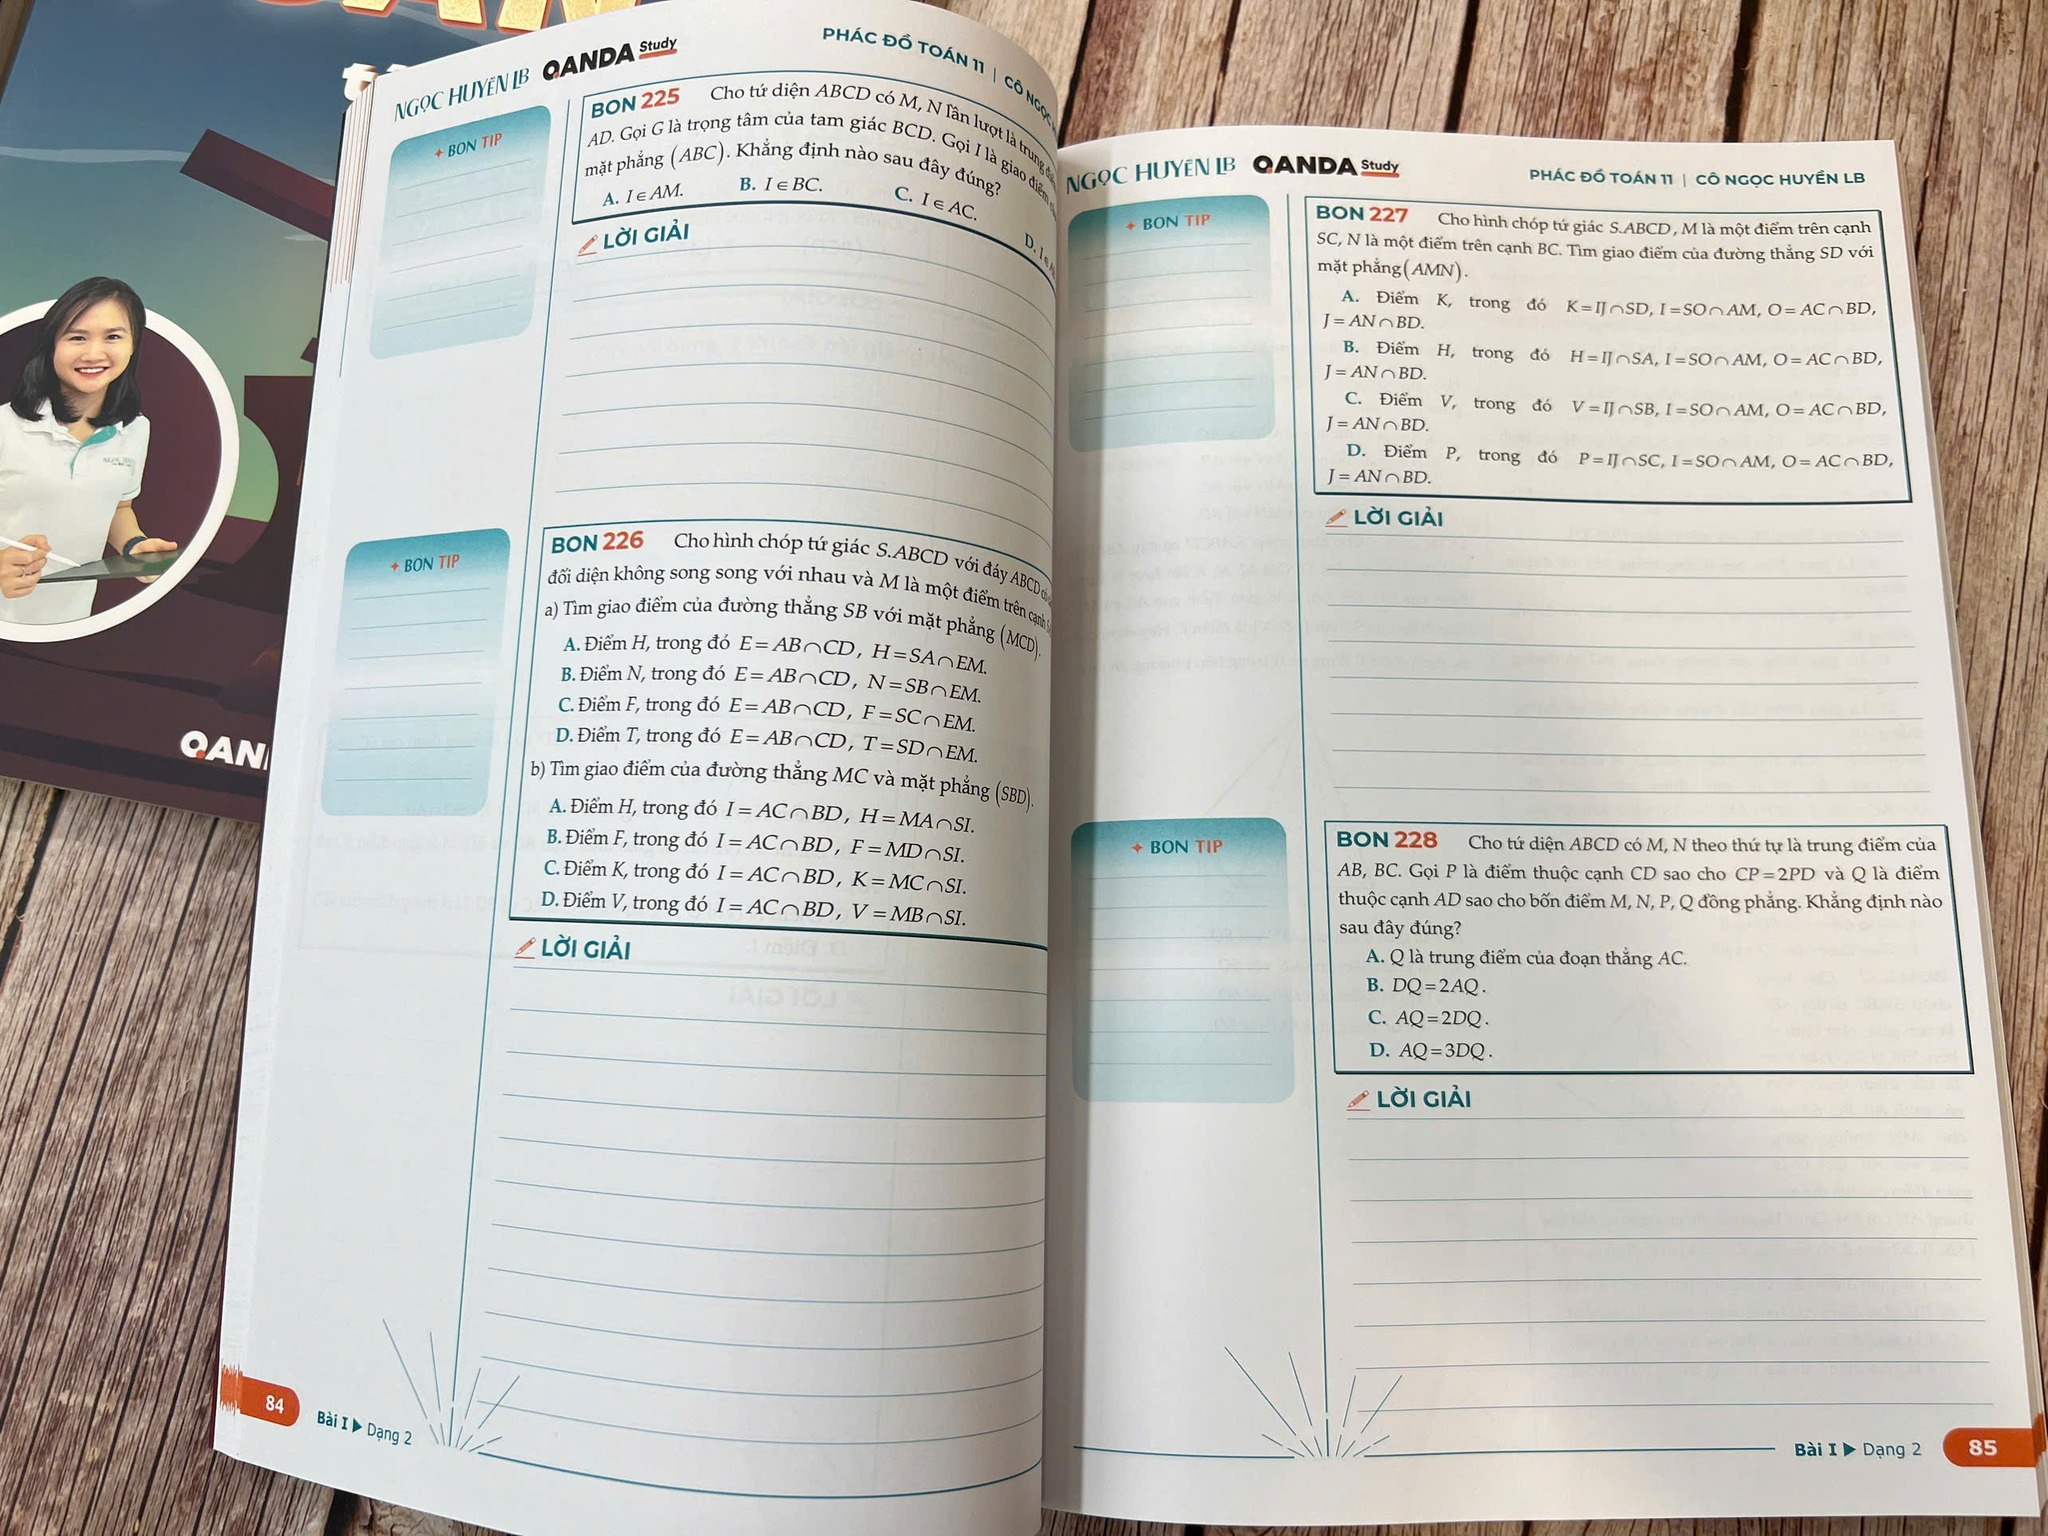 NGỌC HUYỀN LB QANDA Study
PHÁC ĐỒ TOÁN 11 | CÔ
BON TIP
BON 225 Cho tứ diện ABCD có M, N lần lượt là trung
AD. Gọi G là trọng tâm của tam giác BCD. Gọi I là giao điểm
mặt phẳng (ABC). Khẳng định nào sau đây đúng?
A. I∈AM. B. I∈BC. C. I∈AC. D. I∈
LỜI GIẢI
BON TIP
BON 226 Cho hình chóp tứ giác S.ABCD với đáy ABCD
đối diện không song song với nhau và M là một điểm trên cạnh
a) Tìm giao điểm của đường thẳng SB với mặt phẳng (MCD).
A. Điểm H, trong đó E=AB∩CD, H=SA∩EM.
B. Điểm N, trong đó E=AB∩CD, N=SB∩EM.
C. Điểm F, trong đó E=AB∩CD, F=SC∩EM.
D. Điểm T, trong đó E=AB∩CD, T=SD∩EM.
b) Tìm giao điểm của đường thẳng MC và mặt phẳng (SBD).
A. Điểm H, trong đó I=AC∩BD, H=MA∩SI.
B. Điểm F, trong đó I=AC∩BD, F=MD∩SI.
C. Điểm K, trong đó I=AC∩BD, K=MC∩SI.
D. Điểm V, trong đó I=AC∩BD, V=MB∩SI.
LỜI GIẢI
84
Bài I ▶ Dạng 2
NGỌC HUYỀN LB QANDA Study
PHÁC ĐỒ TOÁN 11 | CÔ NGỌC HUYỀN LB
BON TIP
BON 227 Cho hình chóp tứ giác S.ABCD, M là một điểm trên cạnh
SC, N là một điểm trên cạnh BC. Tìm giao điểm của đường thẳng SD với
mặt phẳng(AMN).
A. Điểm K, trong đó K=IJ∩SD, I=SO∩AM, O=AC∩BD,
J=AN∩BD.
B. Điểm H, trong đó H=IJ∩SA, I=SO∩AM, O=AC∩BD,
J=AN∩BD.
C. Điểm V, trong đó V=IJ∩SB, I=SO∩AM, O=AC∩BD,
J=AN∩BD.
D. Điểm P, trong đó P=IJ∩SC, I=SO∩AM, O=AC∩BD,
J=AN∩BD.
LỜI GIẢI
BON TIP
BON 228 Cho tứ diện ABCD có M, N theo thứ tự là trung điểm của
AB, BC. Gọi P là điểm thuộc cạnh CD sao cho CP=2PD và Q là điểm
thuộc cạnh AD sao cho bốn điểm M, N, P, Q đồng phẳng. Khẳng định nào
sau đây đúng?
A. Q là trung điểm của đoạn thẳng AC.
B. DQ=2AQ.
C. AQ=2DQ.
D. AQ=3DQ.
LỜI GIẢI
Bài I ▶ Dạng 2
85